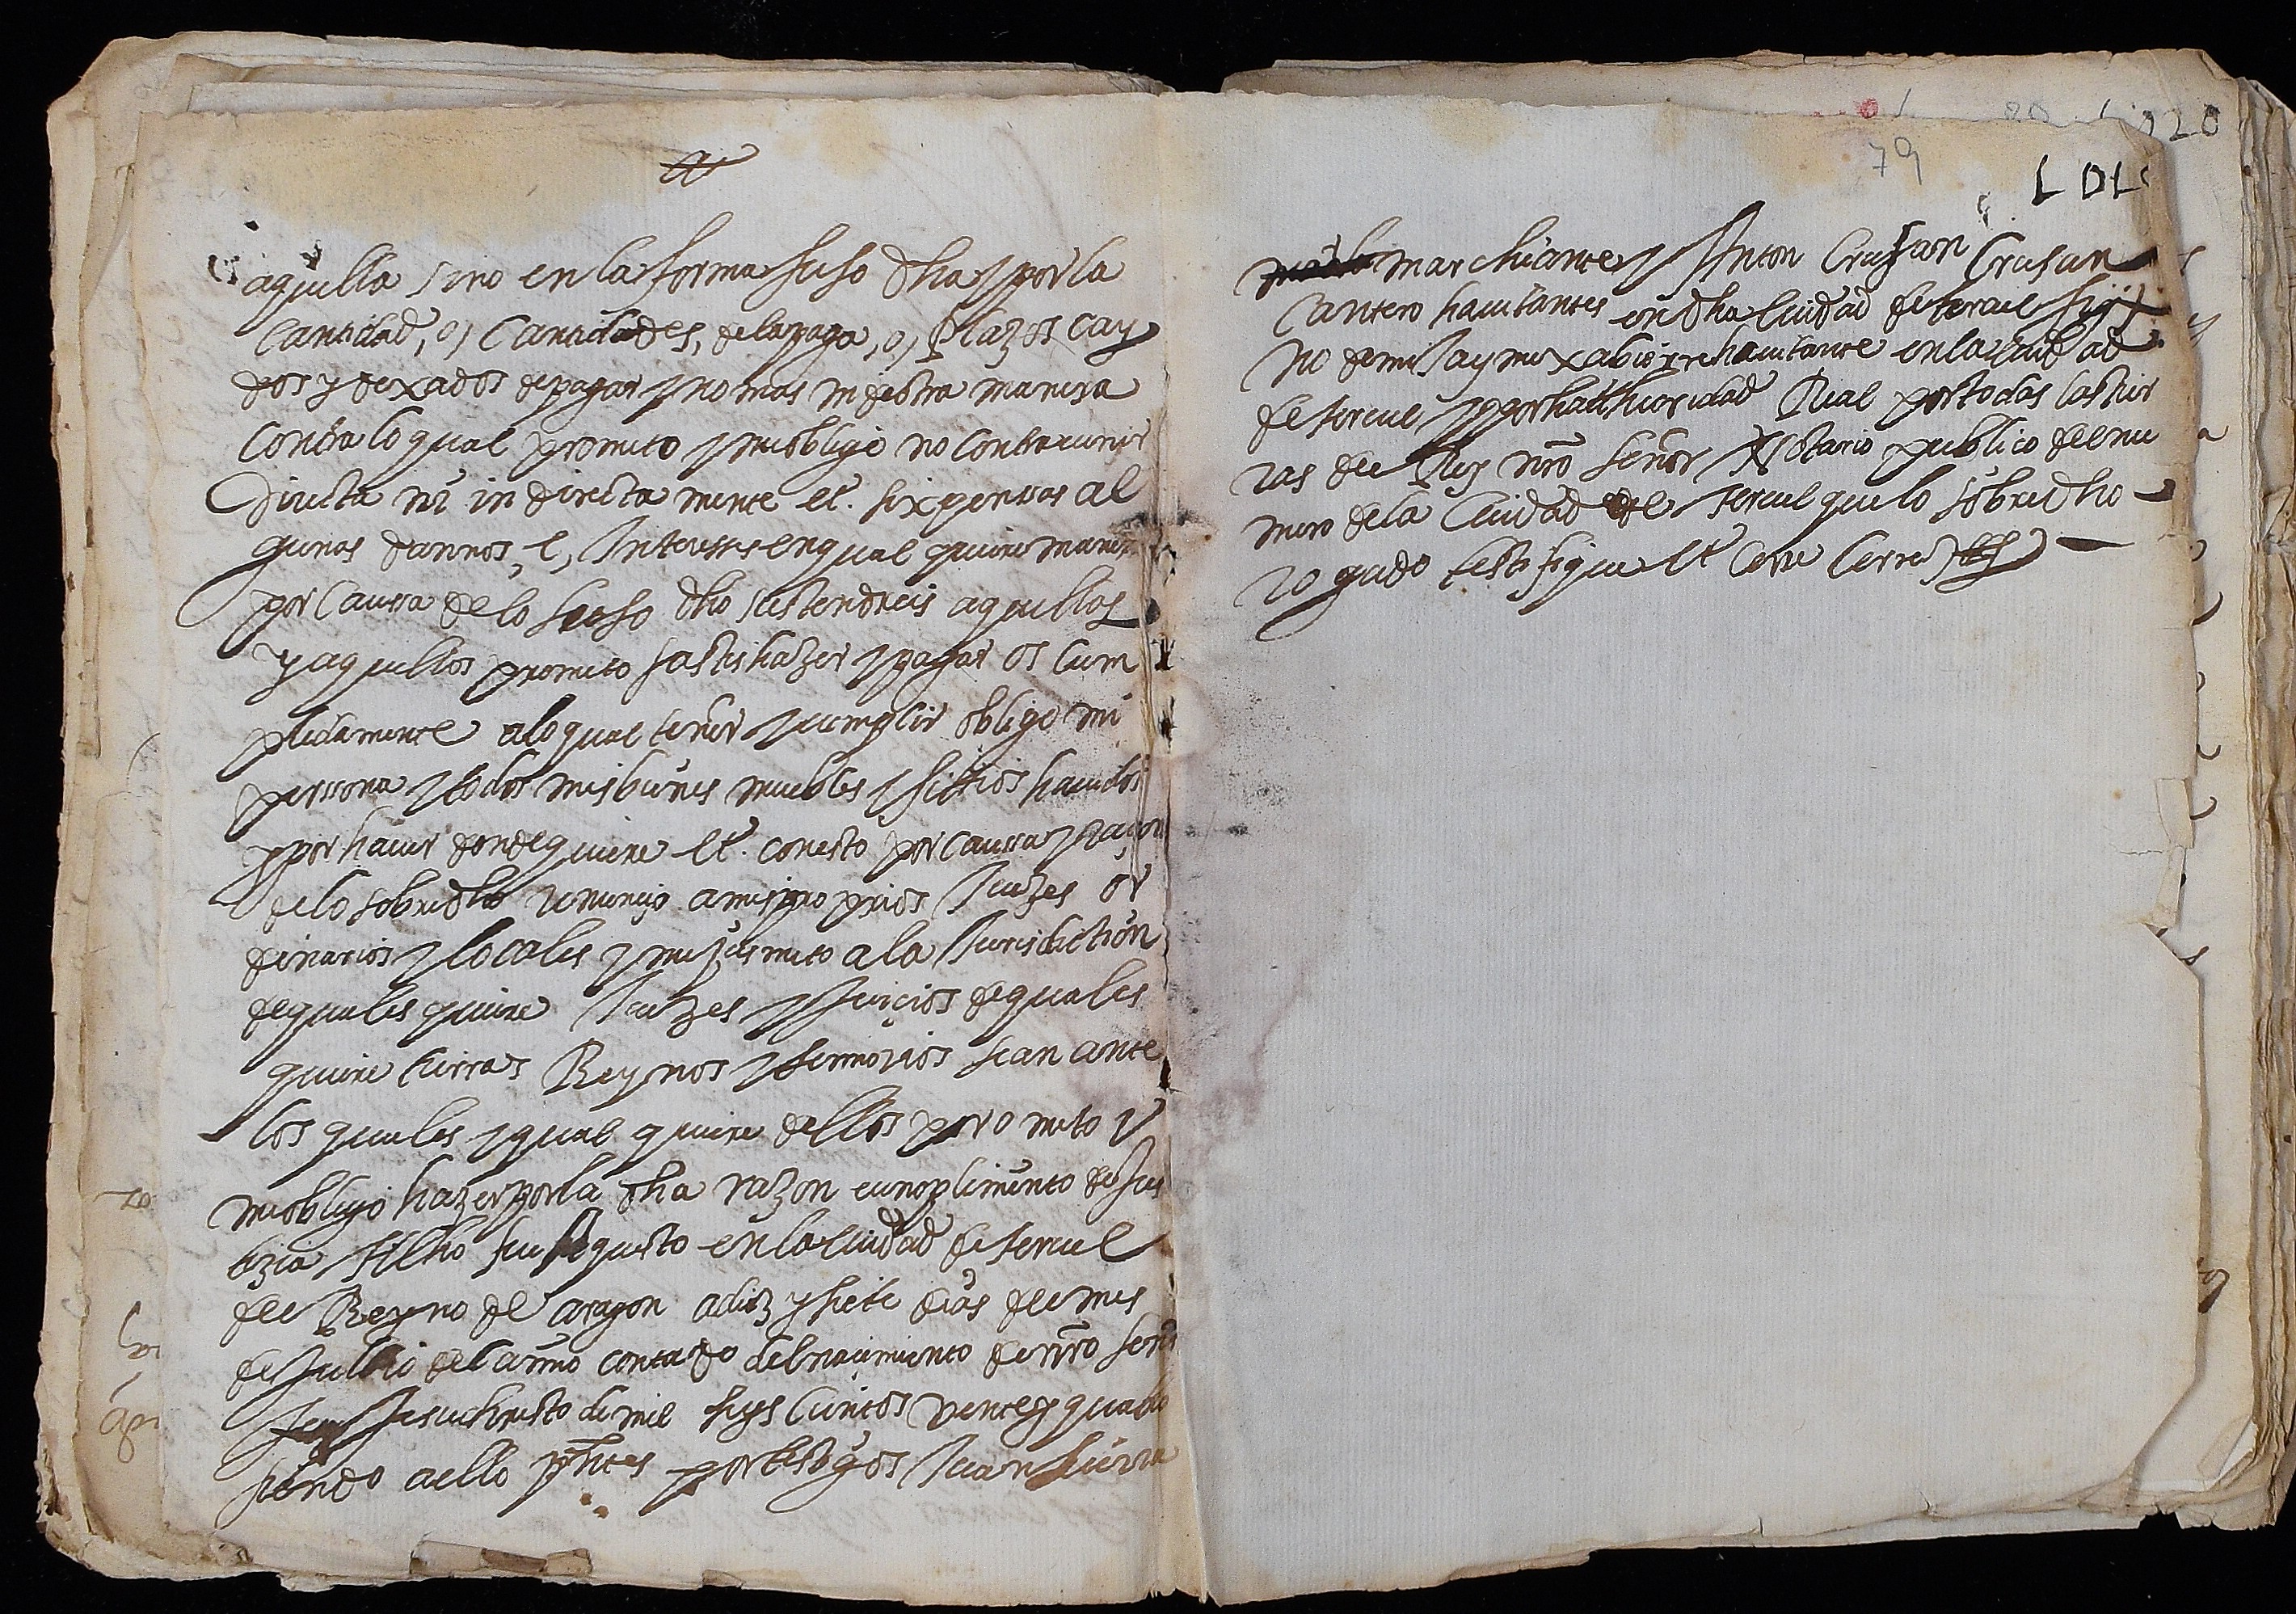 aquella sino en la forma suso dha y por la
Cantidad, o, Cantidades, de la paga, o, Plazos cay
dos y dexados de pagar y no mas ni de otra manera
Contra lo qual prometo y me obligo no contrauenir
Directa ni in directa mente et. si expenssas al
gunas dannos, e, Interesses en qual quiere manera
por Caussa de lo suso dho sustendreis aquellas
y aquellos prometo satishazer y pagar os Cum
plidamente a lo qual tener y cumplir obligo mi
perssona y todos mis bienes muebles y sittios hauidos
y por hauer donde quiere et. con esto por caussa y raçon
de lo sobredho renuncio a mis proprios Juezes or
dinarios y locales y me jusmeto a la Jurisdiction
de quales quiere Juezes y Juicios de quales
quiere tierras Reynos y senorios sean ante
los quales y qual quiere dellos prometo y
me obligo hazer por la dha razon cumplimiento de Jus
tizia fecho fue aquesto en la Ciudad de teruel
del Reyno de aragon a diez y siete dias del mes
de Julio del anno contado del nacimiento de nro senor
Jesuchristo de mil seys Cientos vente y quatro
siendo a ello pntes por testigos Juan Sierra
79
marchiante y Anton Crusan Crusan
Cantero hauitantes en dha Ciudad de teruel Sig
no de mi Jayme xabierre hauitante en la Ciudad
de teruel y por hautthoridad Rial por todas las tier
ras del Rey nro Señor Notario publico del nu
mero de la Ciudad de teruel que lo sobredho
rogado testifique et Cerre